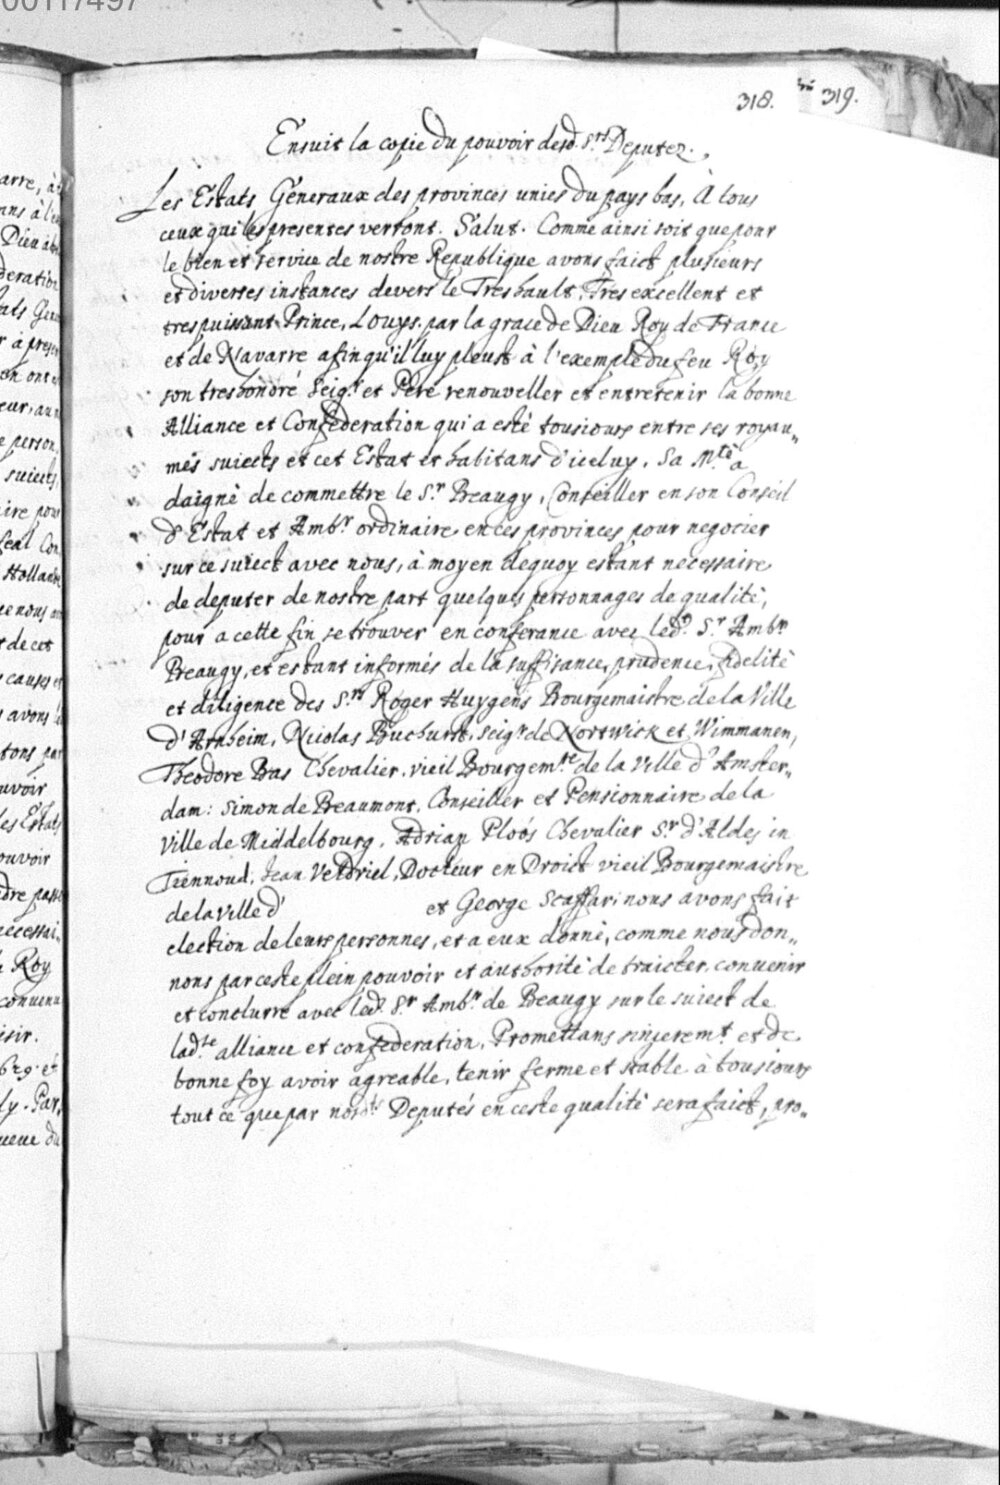 00117497
318. 319.
Ensuit la copie du pouvoir desd. Srs Deputez.
Les Estats Generaux des provinces unies du pays bas, A tous
ceux qui les presentes verront. Salut. Comme ainsi soit que pour
le bien et service de nostre Republique avons faict plusieurs
et diverses instances devers le Treshault, Tres excellent et
trespuissant Prince, Louys par la grace de Dieu Roy de France
et de Navarre afin qu'il luy pleust à l'exemple du feu Roy
son treshonoré Seigr et Pere renouveller et entretenir la bonne
Alliance et Confederation qui a esté tousiours entre ses royau„
mes suiects et cet Estat et habitans d'iceluy. Sa Mté a
daigné de commettre le Sr Beaugy, Conseiller en son Conseil
d'Estat et Ambr ordinaire en ces provinces pour negocier
sur ce suiect avec nous, à moyen dequoy estant necessaire
de deputer de nostre part quelques personnages de qualité,
pour a cette fin se trouver en conferance avec led. Sr Ambr
Beaugy, et estant informés de la suffisance, prudence, fidelité
et diligence des Srs Roger Huygens Bourgemaistre de la Ville
d'Arnheim, Nicolas Buchurst, seigr de Nortwick et Wimmanen,
Theodore Bas Chevalier, vieil Bourgemre de la Ville d'Amster„
dam: Simon de Beaumont, Conseiller et Pensionnaire de la
Ville de Middelbourg, Adrian Ploos Chevalier Sr d'Aldes in
Tiennoud, Jean Veldriel, Docteur en Droict vieil Bourgemaistre
de la ville d' et George Scaffari nous avons fait
election de leurs personnes, et a eux donné, comme nous don„
nons par ceste plein pouvoir et authorité de traicter, convenir
et conclurre avec led. Sr Ambr de Beaugy sur le suiect de
lad.te alliance et confederation, Promettans sinceremt et de
bonne foy avoir agreable, tenir ferme et stable à tousiours
tout ce que par nosts Deputés en ceste qualité sera faict, pro„